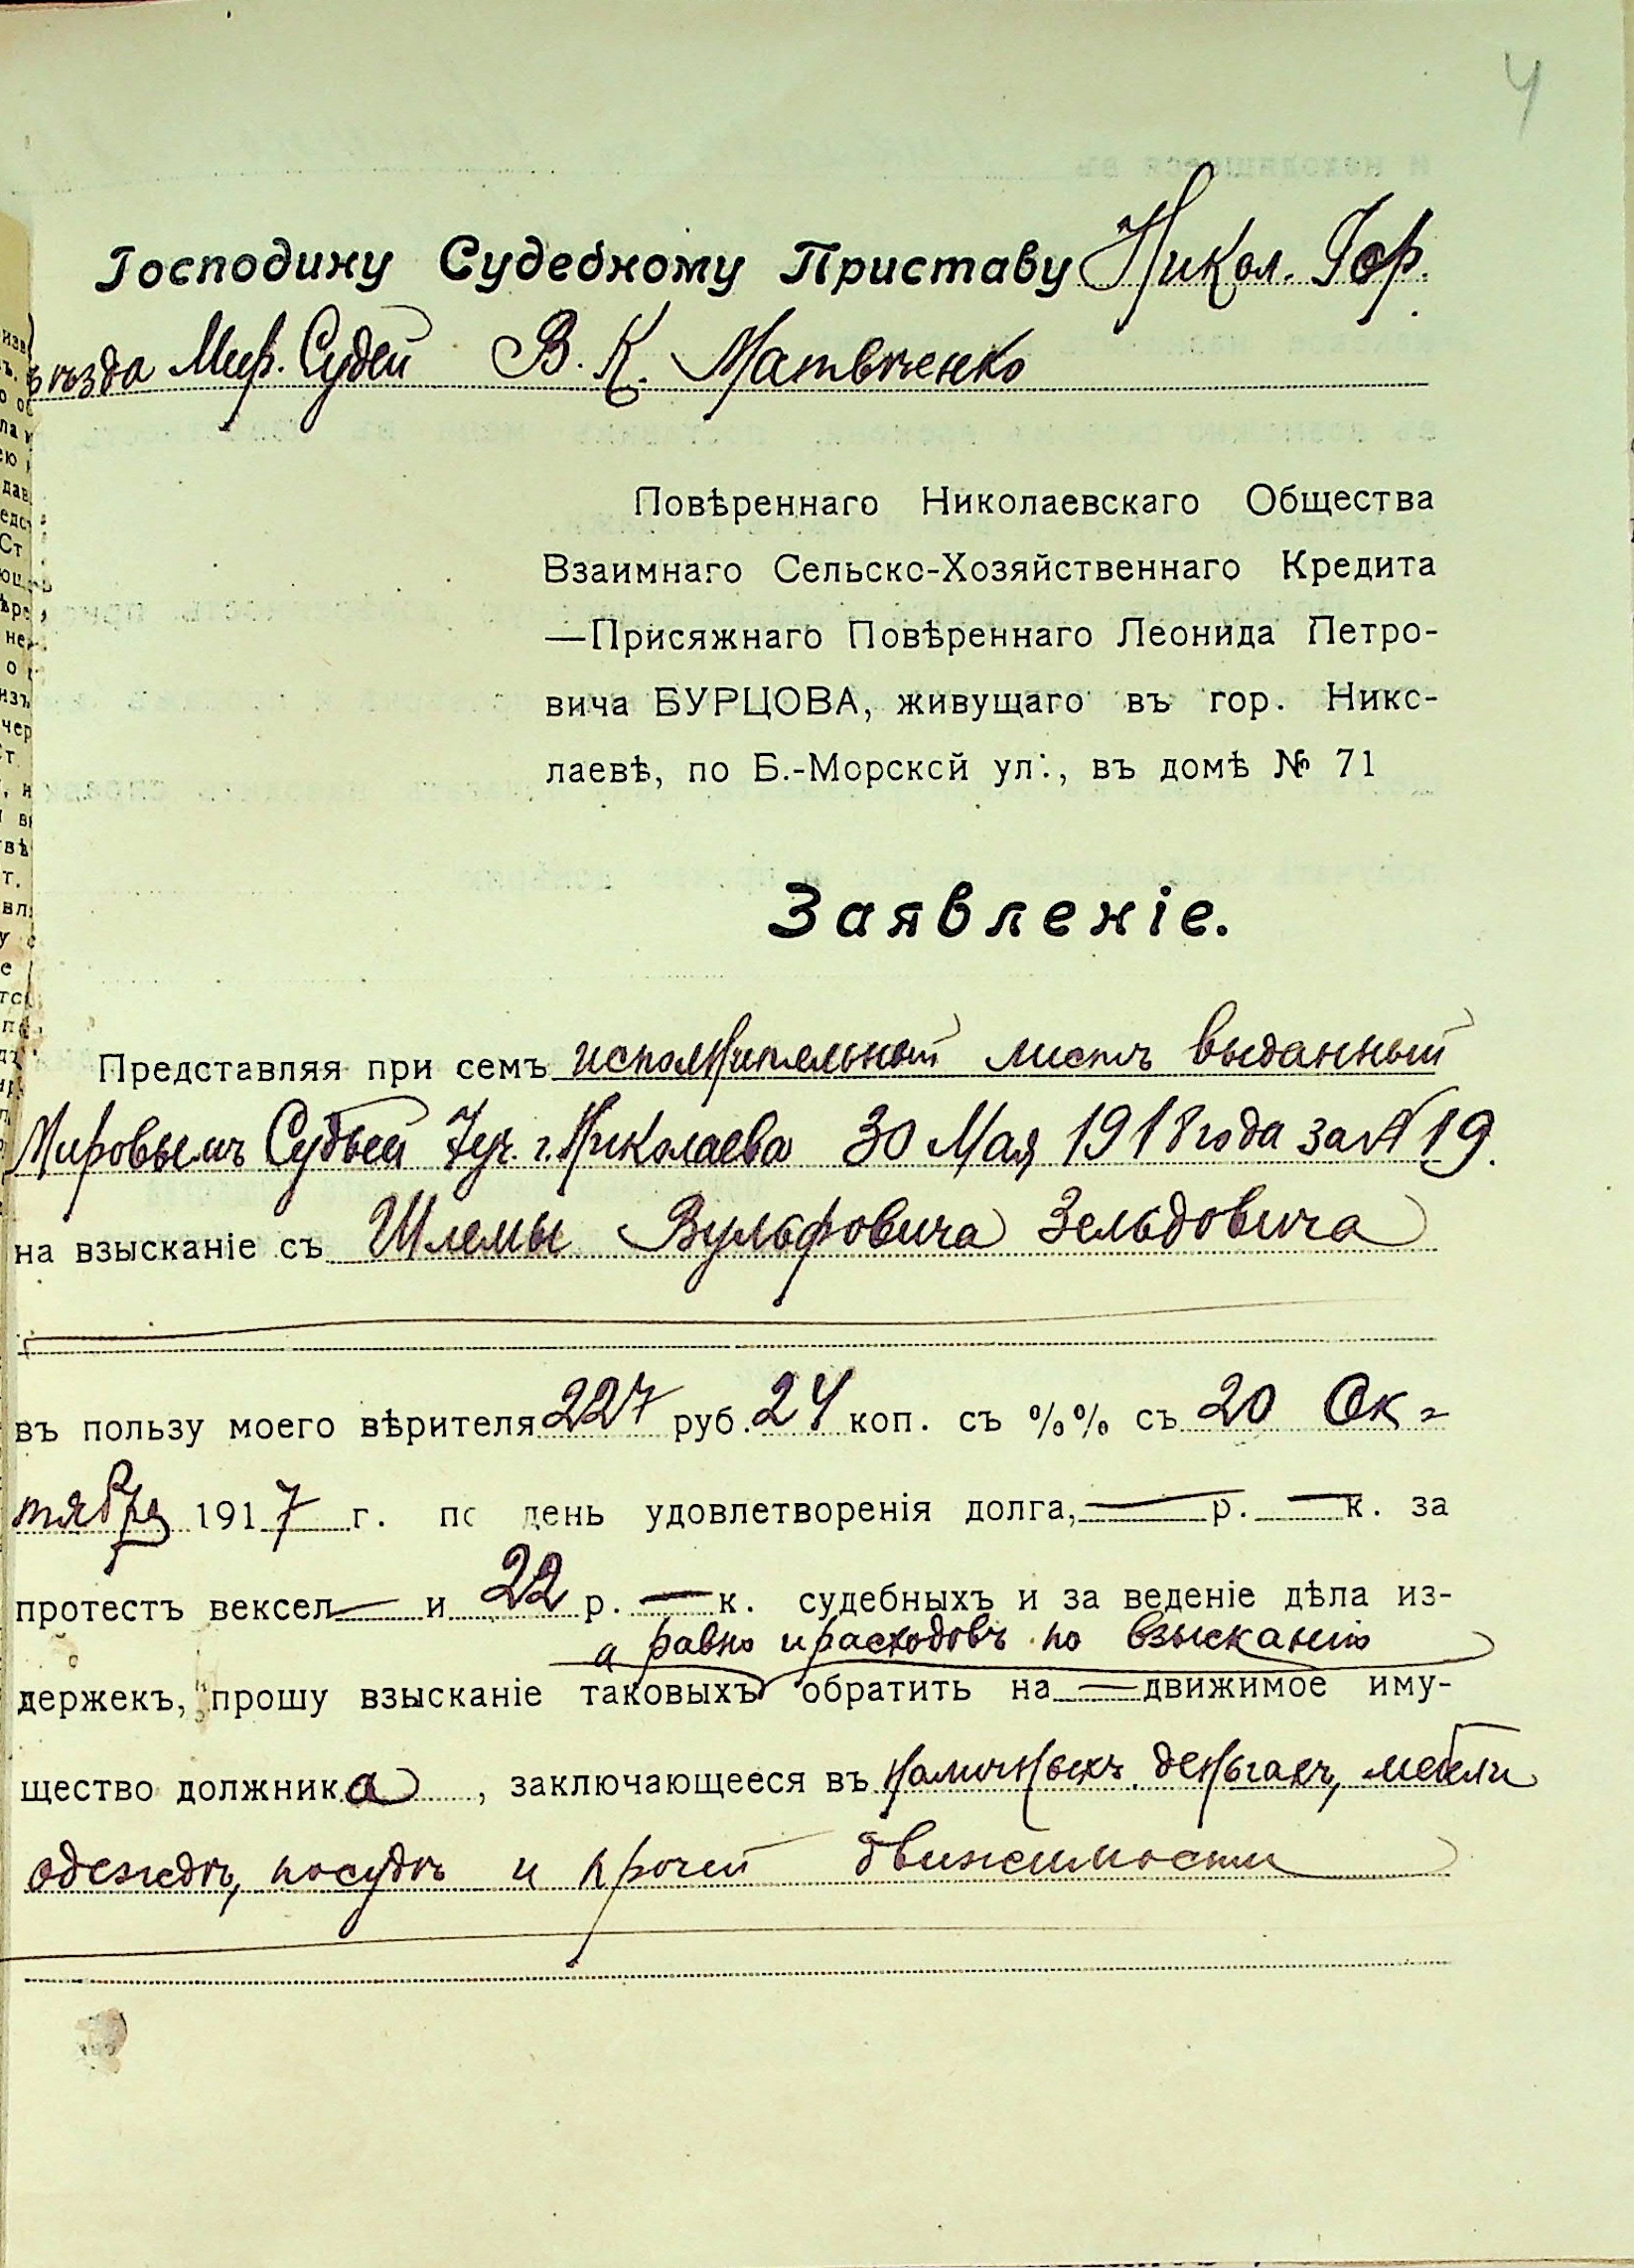 4
Господину Судебному Приставу Никол. Гор.
Съѣзда Мир. Судей В. К. Матвѣенко
Повѣреннаго Николаевскаго Общества
Взаимнаго Сельско-Хозяйственнаго Кредита
—Присяжнаго Повѣреннаго Леонида Петро-
вича БУРЦОВА, живущаго въ гор. Нико-
лаевѣ, по Б.-Морской ул., въ домѣ № 71
Заявленіе.
Представляя при семъ исполнительный листъ выданный
Мировымъ Судьей 7 уч. г. Николаева 30 Мая 1918 года за № 19.
на взысканіе съ Шлемы Вульфовича Зельдовича
въ пользу моего вѣрителя 227 руб. 24 коп. съ %% съ 20 Ок-
тября 1917 г. по день удовлетворенія долга, — р. — к. за
протестъ вексел— и 22 р. — к. судебныхъ и за веденіе дѣла из-
а равно и расходовъ по взысканію
держекъ, прошу взысканіе таковыхъ обратить на — движимое иму-
щество должника, заключающееся въ наличныхъ деньгахъ, мебели
одеждѣ, посудѣ и прочей движимости